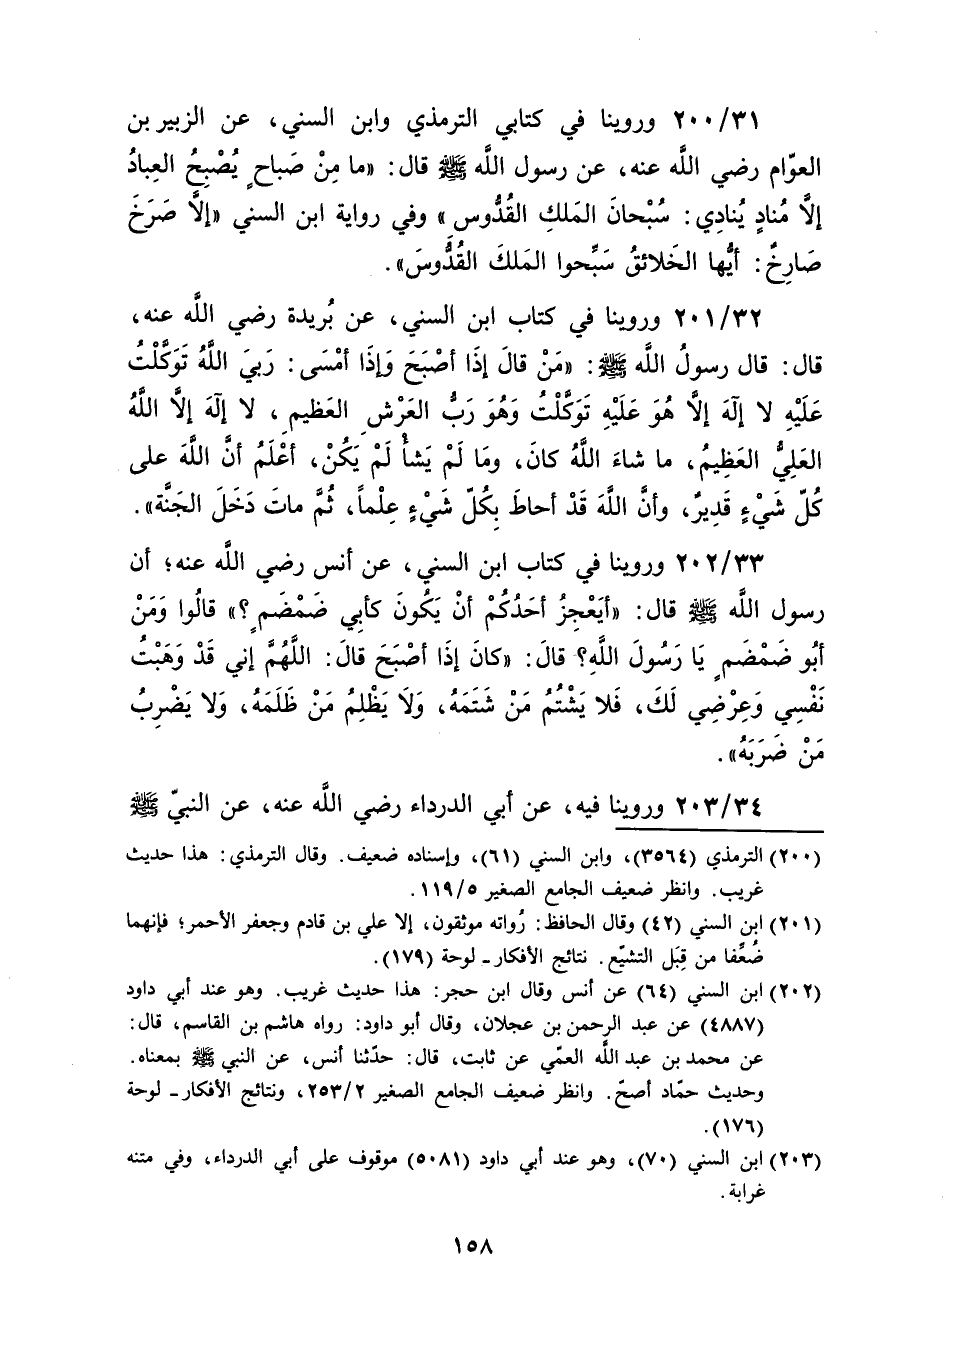 ٢٠٠/٣١ وروينا في كتابي الترمذي وابن السني، عن الزبير بن
العوّام رضي اللَّه عنه، عن رسول اللَّه ﷺ قال: «ما مِنْ صَباحٍ يُصْبِحُ العِبادُ
إلَّا مُنادٍ يُنادِي: سُبْحانَ المَلكِ القُدُّوس» وفي رواية ابن السني «إلَّا صَرَخَ
صَارِخٌ: أيُّها الخَلائقُ سَبِّحوا المَلكَ القُدُّوسَ».
٢٠١/٣٢ وروينا في كتاب ابن السني، عن بُريدة رضي اللَّه عنه،
قال: قال رسولُ اللَّه ﷺ: «مَنْ قالَ إذَا أصْبَحَ وَإذَا أمْسَى: رَبيَ اللَّهُ تَوَكَّلْتُ
عَلَيْهِ لا إلَهَ إلَّا هُوَ عَلَيْهِ تَوَكَّلْتُ وَهُوَ رَبُّ العَرْشِ العَظيمِ، لا إلَهَ إلَّا اللَّهُ
العَلِيُّ العَظِيمُ، ما شاءَ اللَّهُ كانَ، ومَا لَمْ يَشأْ لَمْ يَكُنْ، أعْلَمُ أنَّ اللَّهَ على
كُلّ شَيْءٍ قَدِيرٌ، وأنَّ اللَّهَ قَدْ أحاطَ بِكُلّ شَيْءٍ عِلْماً، ثُمَّ ماتَ دَخَلَ الجَنَّة».
٢٠٢/٣٣ وروينا في كتاب ابن السني، عن أنس رضي اللَّه عنه؛ أن
رسول اللَّه ﷺ قال: «أيَعْجِزُ أحَدُكُمْ أنْ يَكُونَ كأبي ضَمْضَمٍ؟» قالُوا وَمَنْ
أبُو ضَمْضَمٍ يَا رَسُولَ اللَّهِ؟ قالَ: «كانَ إذَا أصْبَحَ قالَ: اللَّهُمَّ إني قَدْ وَهَبْتُ
نَفْسِي وَعِرْضِي لَكَ، فَلا يَشْتُمُ مَنْ شَتَمَهُ، وَلَا يَظْلِمُ مَنْ ظَلَمَهُ، وَلا يَضْرِبُ
مَنْ ضَرَبَهُ».
٢٠٣/٣٤ وروينا فيه، عن أبي الدرداء رضي اللَّه عنه، عن النبيّ ﷺ
(٢٠٠) الترمذي (٣٥٦٤)، وابن السني (٦١)، وإسناده ضعيف. وقال الترمذي: هذا حديث
غريب. وانظر ضعيف الجامع الصغير ١١٩/٥.
(٢٠١) ابن السني (٤٢) وقال الحافظ: رُواته موثقون، إلا علي بن قادم وجعفر الأحمر؛ فإنهما
ضُعِّفا من قِبَل التشيّع. نتائج الأفكار ـ لوحة (١٧٩).
(٢٠٢) ابن السني (٦٤) عن أنس وقال ابن حجر: هذا حديث غريب. وهو عند أبي داود
(٤٨٨٧) عن عبد الرحمن بن عجلان، وقال أبو داود: رواه هاشم بن القاسم، قال:
عن محمد بن عبد اللَّه العمّي عن ثابت، قال: حدّثنا أنس، عن النبي ﷺ بمعناه.
وحديث حمّاد أصحّ. وانظر ضعيف الجامع الصغير ٢٥٣/٢، ونتائج الأفكار ـ لوحة
(١٧٦).
(٢٠٣) ابن السني (٧٠)، وهو عند أبي داود (٥٠٨١) موقوف على أبي الدرداء، وفي متنه
غرابة.
١٥٨